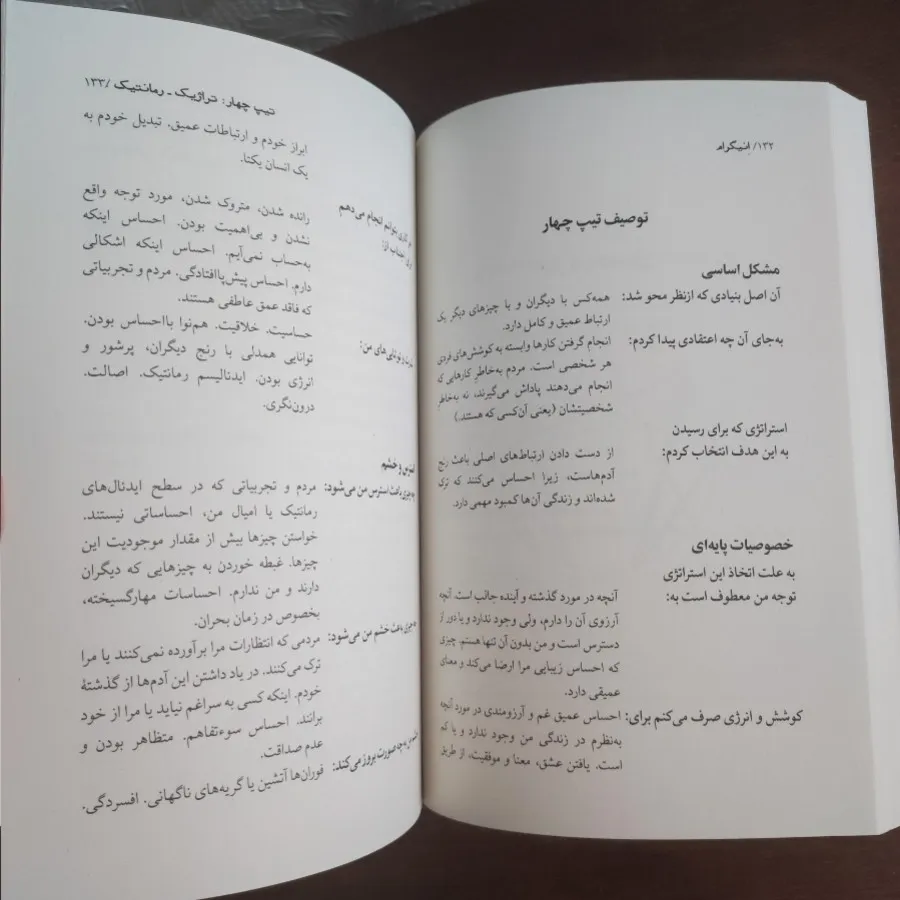 ۱۳۲/ انیگرام
توصیف تیپ چهار
مشکل اساسی
آن اصل بنیادی که ازنظر محو شد:
همه‌کس با دیگران و با چیزهای دیگر یک
ارتباط عمیق و کامل دارد.
به‌جای آن چه اعتقادی پیدا کردم:
انجام گرفتن کارها وابسته به کوشش‌های فردی
هر شخصی است. مردم به‌خاطر کارهایی که
انجام می‌دهند پاداش می‌گیرند، نه به‌خاطر
شخصیتشان (یعنی آن‌کسی که هستند.)
استراتژی که برای رسیدن
به این هدف انتخاب کردم:
از دست دادن ارتباط‌های اصلی باعث رنج
آدم‌هاست، زیرا احساس می‌کنند که ترک
شده‌اند و زندگی آن‌ها کمبود مهمی دارد.
خصوصیات پایه‌ای
به علت اتخاذ این استراتژی
توجه من معطوف است به:
آنچه در مورد گذشته و آینده جالب است. آنچه
آرزوی آن را دارم، ولی وجود ندارد و یا دور از
دسترس است و من بدون آن تنها هستم. چیزی
که احساس زیبایی مرا ارضا می‌کند و معنای
عمیقی دارد.
کوشش و انرژی صرف می‌کنم برای:
احساس عمیق غم و آرزومندی در مورد آنچه
به‌نظرم در زندگی من وجود ندارد و یا کم
است. یافتن عشق، معنا و موفقیت، از طریق
تیپ چهار: تراژیک ـ رمانتیک /۱۳۳
ابراز خودم و ارتباطات عمیق. تبدیل خودم به
یک انسان یکتا.
بتوانم انجام می‌دهم
از:
رانده شدن، متروک شدن، مورد توجه واقع
نشدن و بی‌اهمیت بودن. احساس اینکه
به‌حساب نمی‌آیم. احساس اینکه اشکالی
دارم. احساس پیش‌پاافتادگی. مردم و تجربیاتی
که فاقد عمق عاطفی هستند.
و توانایی های من:
حساسیت. خلاقیت. هم‌نوا بااحساس بودن.
توانایی همدلی با رنج دیگران، پرشور و
انرژی بودن. ایدنالیسم رمانتیک. اصالت.
درون‌نگری.
استرس و خشم
چه چیزی باعث استرس من می‌شود:
مردم و تجربیاتی که در سطح ایدنال‌های
رمانتیک یا امیال من، احساساتی نیستند.
خواستن چیزها بیش از مقدار موجودیت این
چیزها. غبطه خوردن به چیزهایی که دیگران
دارند و من ندارم. احساسات مهارگسیخته،
بخصوص در زمان بحران.
چه چیزی باعث خشم من می‌شود:
مردمی که انتظارات مرا برآورده نمی‌کنند یا مرا
ترک می‌کنند. در یاد داشتن این آدم‌ها از گذشتهٔ
خودم. اینکه کسی به سراغم نیاید یا مرا از خود
برانند. احساس سوءتفاهم. متظاهر بودن و
عدم صداقت.
به چه صورت بروز می‌کند:
فوران‌ها آتشین یا گریه‌های ناگهانی. افسردگی.